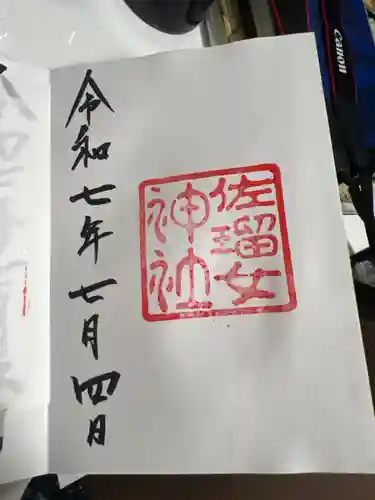 佐瑠女
神社
令和七年七月四日
Canon